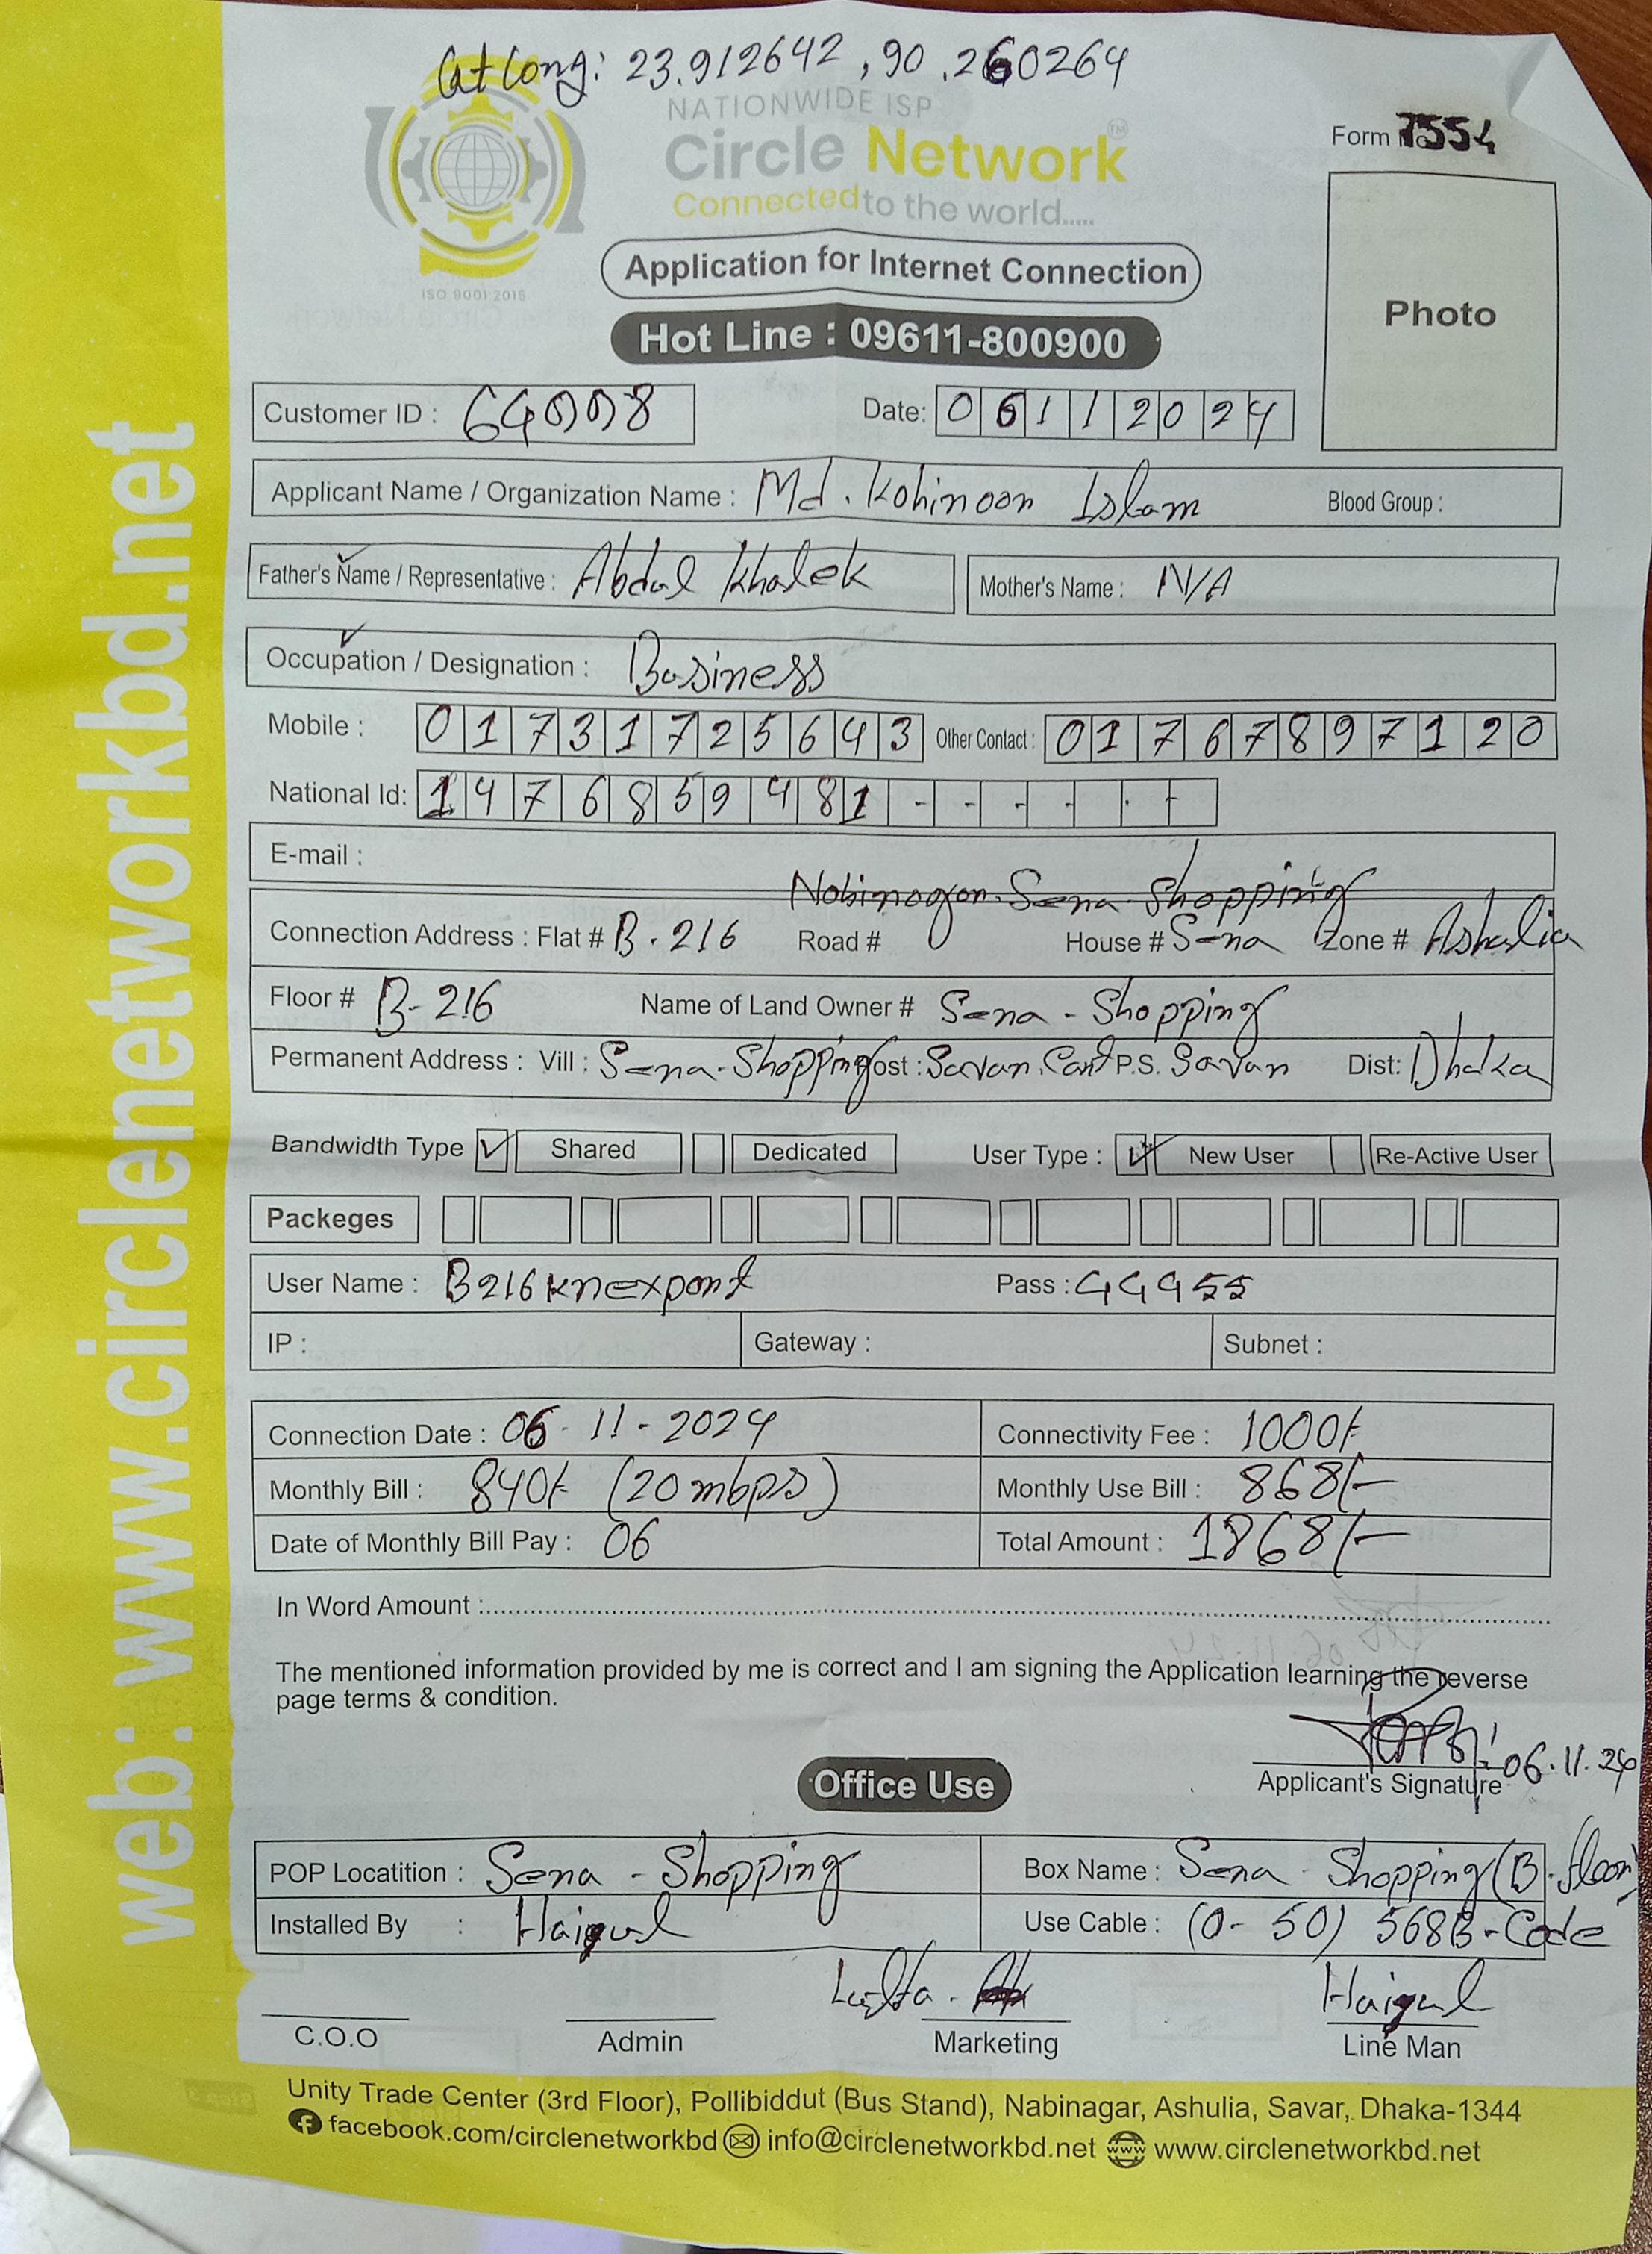 Lat Long: 23.912642, 90.260264
NATIONWIDE ISP
Circle Network™
Connected to the world.....
ISO 9001:2015
Form No 7554
Application for Internet Connection
Hot Line : 09611-800900
Photo
Customer ID : 64008
Date: 06112024
Applicant Name / Organization Name : Md. Kohinoor Islam Blood Group :
Father's Name / Representative : Abdul Khalek Mother's Name : N/A
Occupation / Designation : Business
Mobile : 01731725643 Other Contact : 01767897120
National Id: 1476859481
E-mail :
Nobinogor. Sena Shopping
Connection Address : Flat # B-216 Road # House # Sena Zone # Ashulia
Floor # B-216 Name of Land Owner # Sena - Shopping
Permanent Address : Vill : Sena-Shopping Post : Savar. Cant P.S. Savar Dist: Dhaka
Bandwidth Type Shared Dedicated User Type : New User Re-Active User
Packeges
User Name : B216knexport Pass : 44955
IP : Gateway : Subnet :
Connection Date : 06-11-2024 Connectivity Fee : 1000/-
Monthly Bill : 840/- (20 mbps) Monthly Use Bill : 868/-
Date of Monthly Bill Pay : 06 Total Amount : 1868/-
In Word Amount :
The mentioned information provided by me is correct and I am signing the Application learning the reverse
page terms & condition.
06.11.24
Applicant's Signature
Office Use
POP Locatition : Sena - Shopping Box Name : Sena Shopping (B-floor)
Installed By : Haigul Use Cable : (0-50) 568B-Code
Haigul
C.O.O Admin Marketing Line Man
Unity Trade Center (3rd Floor), Pollibiddut (Bus Stand), Nabinagar, Ashulia, Savar, Dhaka-1344
facebook.com/circlenetworkbd info@circlenetworkbd.net www.circlenetworkbd.net
web: www.circlenetworkbd.net